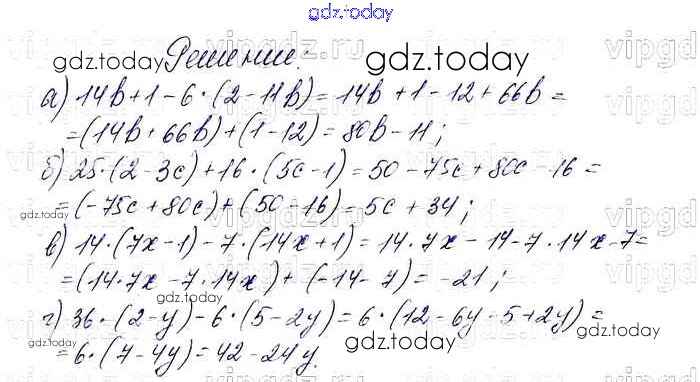 gdz.today
Решение:
gdz.today
gdz.today
а) 14b+1-6·(2-11b)=14b+1-12+66b=
=(14b+66b)+(1-12)=80b-11;
б) 25·(2-3c)+16·(5c-1)=50-75c+80c-16=
=(-75c+80c)+(50-16)=5c+34;
gdz.today
в) 14·(7x-1)-7·(14x+1)=14·7x-14-7·14x-7=
=(14·7x-7·14x)+(-14-7)=-21;
gdz.today
г) 36·(2-y)-6·(5-2y)=6·(12-6y-5+2y)=
=6·(7-4y)=42-24y.
gdz.today
gdz.today